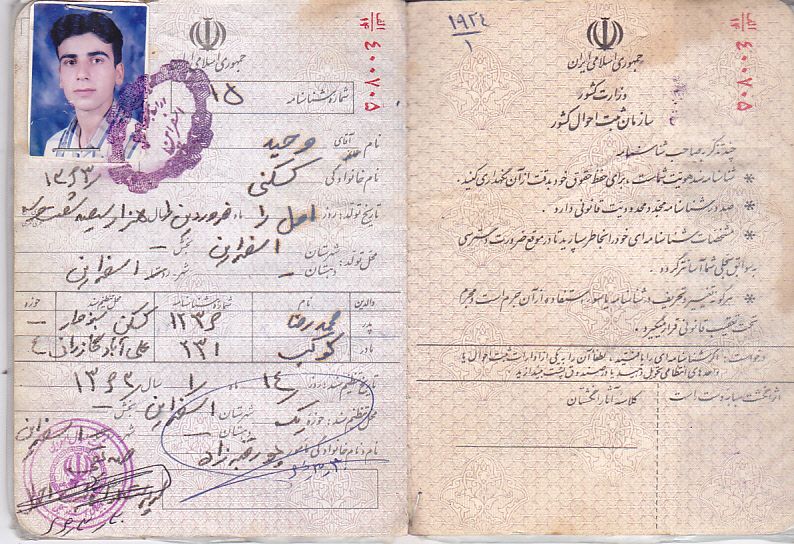 ۱۹۲۴
۱
جمهوری اسلامی ایران
وزارت کشور
سازمان ثبت احوال کشور
۳۰۰۷۰۵
چند تذکر به صاحب شناسنامه
* شناسنامه سند هویت شماست، برای حفظ حقوق خود به دقت از آن نگهداری کنید.
* صدور شناسنامه مجدد محدودیت قانونی دارد.
* مشخصات شناسنامه ای خود را بخاطر بسپارید تا در موقع ضرورت دسترسی
به سوابق سجلی شما آسانتر گردد.
* هرگونه تغییر و تحریف در شناسنامه یا سوء استفاده از آن جرم است و مجرم
تحت تعقیب قانونی قرار میگیرد.
درخواست: اگر شناسنامه ای را یافتید، لطفا آن را به یکی از ادارات ثبت احوال یا
واحدهای انتظامی تحویل دهید یا در صندوق پست بیندازید
اثر انگشت سبابه دست راست است
کلاسه آثار انگشتان
جمهوری اسلامی ایران
۳۰۰۷۰۵
شماره شناسنامه ۱۵
نام آقای وحید
نام خانوادگی سکنی
تاریخ تولد: روز اول ماه فروردین سال هزار سیصد شصت
محل تولد: شهرستان اسفراین بخش –
دهستان – شهر اسفراین
والدین نام شماره شناسنامه حوزه
پدر محمدرضا ۱۲۳۶
مادر کوکب ۲۳۱ علی آباد ۴
تاریخ تنظیم سند: روز ۱۴ ماه ۱ سال ۱۳۶۳
محل تنظیم سند: حوزه یک شهرستان اسفراین بخش –
دهستان – شهر اسفراین
نام و نام خانوادگی مأمور